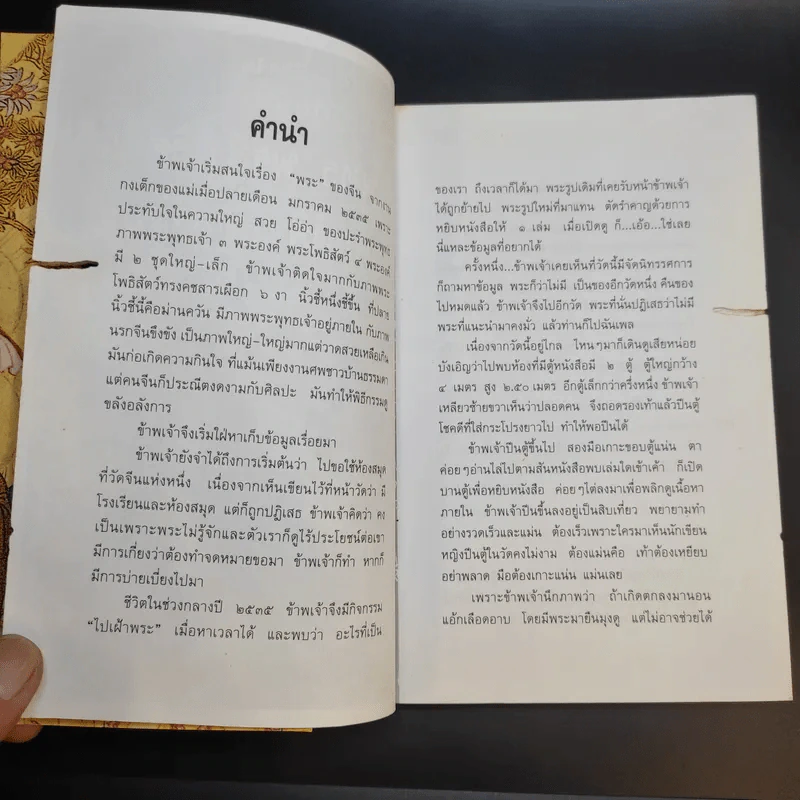 คำนำ
ข้าพเจ้าเริ่มสนใจเรื่อง "พระ" ของจีน จากงาน
กงเต็กของแม่เมื่อปลายเดือน มกราคม ๒๕๓๕ เพราะ
ประทับใจในความใหญ่ สวย โอ่อ่า ของปะรำพระพุทธ
ภาพพระพุทธเจ้า ๓ พระองค์ พระโพธิสัตว์ ๔ พระองค์
มี ๒ ชุดใหญ่-เล็ก ข้าพเจ้าติดใจมากกับภาพพระ
โพธิสัตว์ทรงคชสารเผือก ๖ งา นิ้วชี้หนึ่งชี้ขึ้น ที่ปลาย
นิ้วชี้นี้คือม่านควัน มีภาพพระพุทธเจ้าอยู่ภายใน กับภาพ
นรกจีนขึงขัง เป็นภาพใหญ่-ใหญ่มากแต่วาดสวยเหลือเกิน
มันก่อเกิดความกินใจ ที่แม้นเพียงงานศพชาวบ้านธรรมดา
แต่คนจีนก็ประณีตงดงามกับศิลปะ มันทำให้พิธีกรรมดู
ขลังอลังการ
ข้าพเจ้าจึงเริ่มใฝ่หาเก็บข้อมูลเรื่อยมา
ข้าพเจ้ายังจำได้ถึงการเริ่มต้นว่า ไปขอใช้ห้องสมุด
ที่วัดจีนแห่งหนึ่ง เนื่องจากเห็นเขียนไว้ที่หน้าวัดว่า มี
โรงเรียนและห้องสมุด แต่ก็ถูกปฏิเสธ ข้าพเจ้าคิดว่า คง
เป็นเพราะพระไม่รู้จักและตัวเราก็ดูไร้ประโยชน์ต่อเขา
มีการเกี่ยงว่าต้องทำจดหมายขอมา ข้าพเจ้าก็ทำ หากก็
มีการบ่ายเบี่ยงไปมา
ชีวิตในช่วงกลางปี ๒๕๓๕ ข้าพเจ้าจึงมีกิจกรรม
"ไปเฝ้าพระ" เมื่อหาเวลาได้ และพบว่า อะไรที่เป็น
ของเรา ถึงเวลาก็ได้มา พระรูปเดิมที่เคยรับหน้าข้าพเจ้า
ได้ถูกย้ายไป พระรูปใหม่ที่มาแทน ตัดรำคาญด้วยการ
หยิบหนังสือให้ ๑ เล่ม เมื่อเปิดดู ก็...เอ้อ...ใช่เลย
นี่แหละข้อมูลที่อยากได้
ครั้งหนึ่ง...ข้าพเจ้าเคยเห็นที่วัดนี้มีจัดนิทรรศการ
ก็ถามหาข้อมูล พระก็ว่าไม่มี เป็นของอีกวัดหนึ่ง คืนของ
ไปหมดแล้ว ข้าพเจ้าจึงไปอีกวัด พระที่นั่นปฏิเสธว่าไม่มี
พระที่แนะนำมาคงมั่ว แล้วท่านก็ไปฉันเพล
เนื่องจากวัดนี้อยู่ไกล ไหนๆมาก็เดินดูเสียหน่อย
บังเอิญว่าไปพบห้องที่มีตู้หนังสือมี ๒ ตู้ ตู้ใหญ่กว้าง
๔ เมตร สูง ๒.๕๐ เมตร อีกตู้เล็กกว่าครึ่งหนึ่ง ข้าพเจ้า
เหลียวซ้ายขวาเห็นว่าปลอดคน จึงถอดรองเท้าแล้วปีนตู้
โชคดีที่ใส่กระโปรงยาวไป ทำให้พอปีนได้
ข้าพเจ้าปีนตู้ขึ้นไป สองมือเกาะขอบตู้แน่น ตา
ค่อยๆอ่านไล่ไปตามสันหนังสือพบเล่มใดเข้าเค้า ก็เปิด
บานตู้เพื่อหยิบหนังสือ ค่อยๆไต่ลงมาเพื่อพลิกดูเนื้อหา
ภายใน ข้าพเจ้าปีนขึ้นลงอยู่เป็นสิบเที่ยว พยายามทำ
อย่างรวดเร็วและแม่น ต้องเร็วเพราะใครมาเห็นนักเขียน
หญิงปีนตู้ในวัดคงไม่งาม ต้องแม่นคือ เท้าต้องเหยียบ
อย่าพลาด มือต้องเกาะแน่น แม่นเลย
เพราะข้าพเจ้านึกภาพว่า ถ้าเกิดตกลงมานอน
แอ้กเลือดอาบ โดยมีพระมายืนมุงดู แต่ไม่อาจช่วยได้